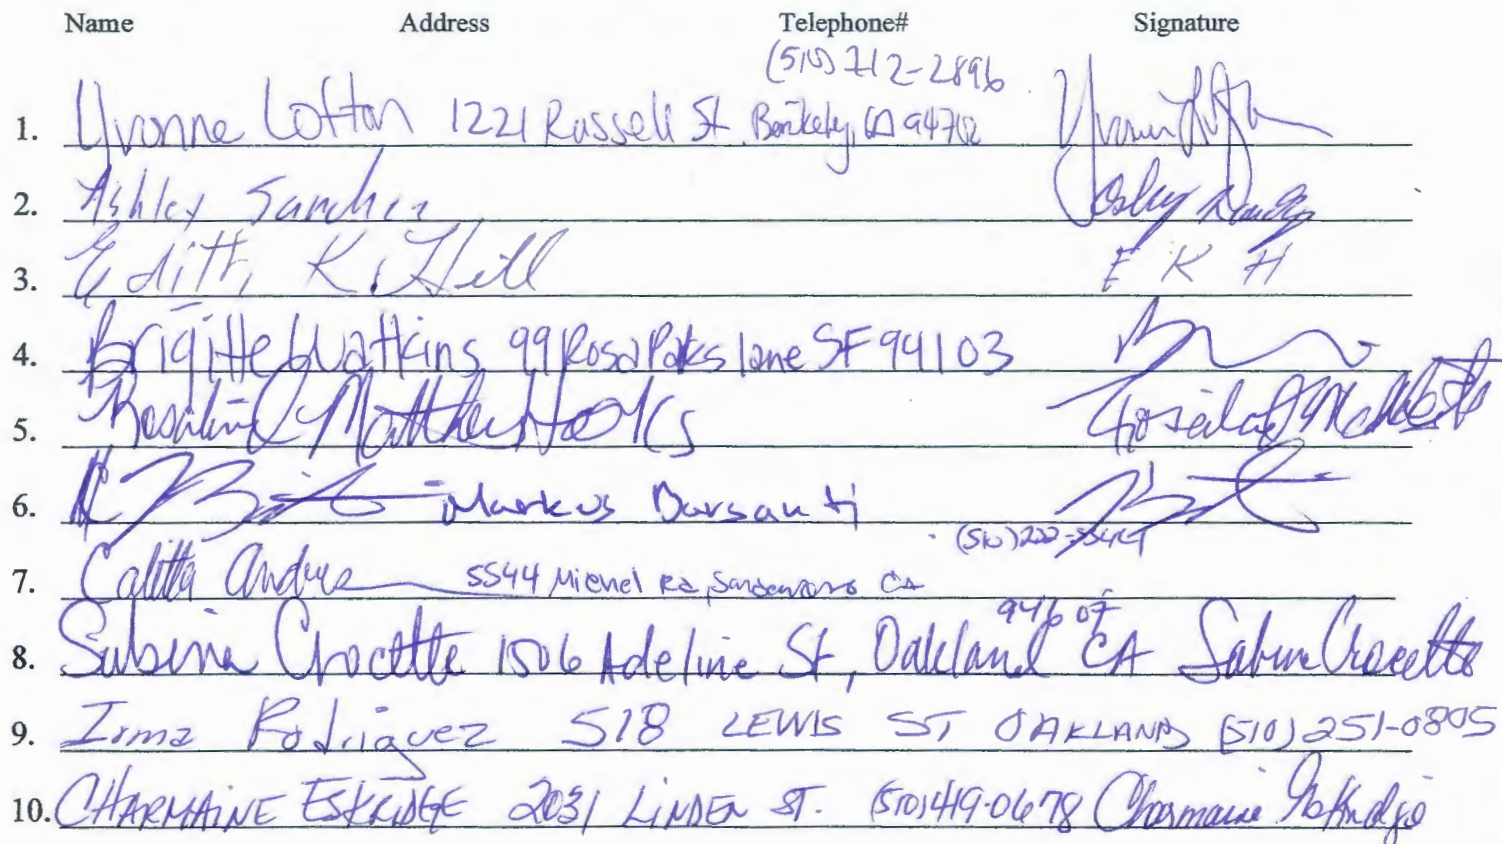 Name Address Telephone# Signature
(510) 712-2896
1. Yvonne Lofton 1221 Russell St. Berkeley, CA 94702
2. Ashley Sanchez
3. Edith K. Hill E K H
4. Brigitte Watkins 99 Rosa Parks lane SF 94103
5. Rosalind Matthew Hooks
6. Markus Barsanti
(510)222-
7. Calitta Andrus 5544 CA
94607
8. Sabina Crocette 1506 Adeline St, Oakland CA Sabina Crocette
9. Irma Rodriguez 518 LEWIS ST OAKLAND (510) 251-0805
10. CHARMAINE ESKRIDGE 2031 LINDEN ST. (510)419-0678 Charmaine Eskridge